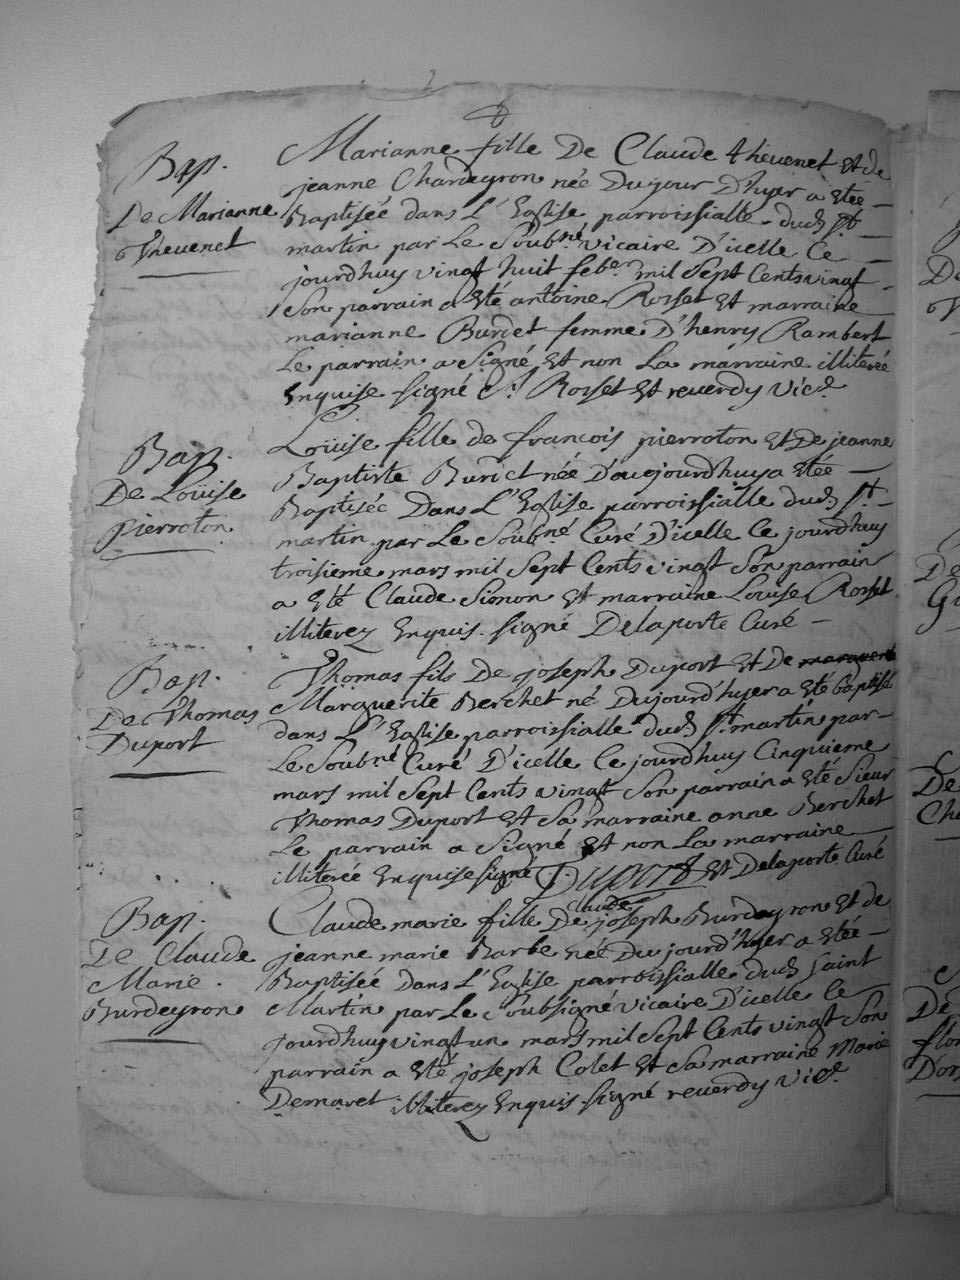 Bap.
De Marianne
Thevenet
Marianne fille De Claude thevenet Et de
jeanne Chardeyron née Dujour D'hyer a etée
Baptisée dans L'Eglise parroissialle dud. St
martin par Le Soubné vicaire D'icelle Ce
jourdhuy vingt huit feber mil Sept Cents vingt
Son parrain a Eté antoine Rosset Et marraine
marianne Burdet femme D'henry Rambert
Le parrain a Signé Et non La marraine illiterée
Enquise signé Rosset Et reverdy vic.e
Bap.
De Loüise
Pierroton
Loüise fille de francois pierroton Et De jeanne
Baptiste Burict née D'aujourdhuy a Etée
Baptisée Dans L'Eglise parroissialle dud. St.
martin par Le Soubné Curé D'icelle Ce jourdhuy
troisieme mars mil Sept Cents vingt Son parrain
a Eté Claude Simon Et marraine Louise Rosset
illiterez Enquis. signé Delaporte Curé
Bap.
De Thomas
Duport
Thomas fils De joseph Duport Et De
Marguerite Berchet né Dujourd'hyer a Eté baptisé
dans L'Eglise parroissialle dud. St. martin par
Le Soubné Curé D'icelle Ce jourdhuy Cinquieme
mars mil Sept Cents vingt Son parrain a Eté Sieur
Thomas Duport Et Sa marraine anne Berchet
Le parrain a Signé Et non La marraine
illiterée Enquise signé T. Duport Et Delaporte Curé
Bap.
De Claude
Marie
Burdeyron
claude
Claude marie fille De joseph Burdeyron Et de
jeanne marie Barbe née Du jourd'hyer a Etée
Baptisée dans L'Eglise parroissialle dud. Saint
Martin par Le Soubsigné vicaire D'icelle Ce
jourdhuy vingt un mars mil Sept Cents vingt Son
parrain a Eté joseph Colet Et Sa marraine Marie
Demaret illiterez Enquis. signé reverdy vic.e